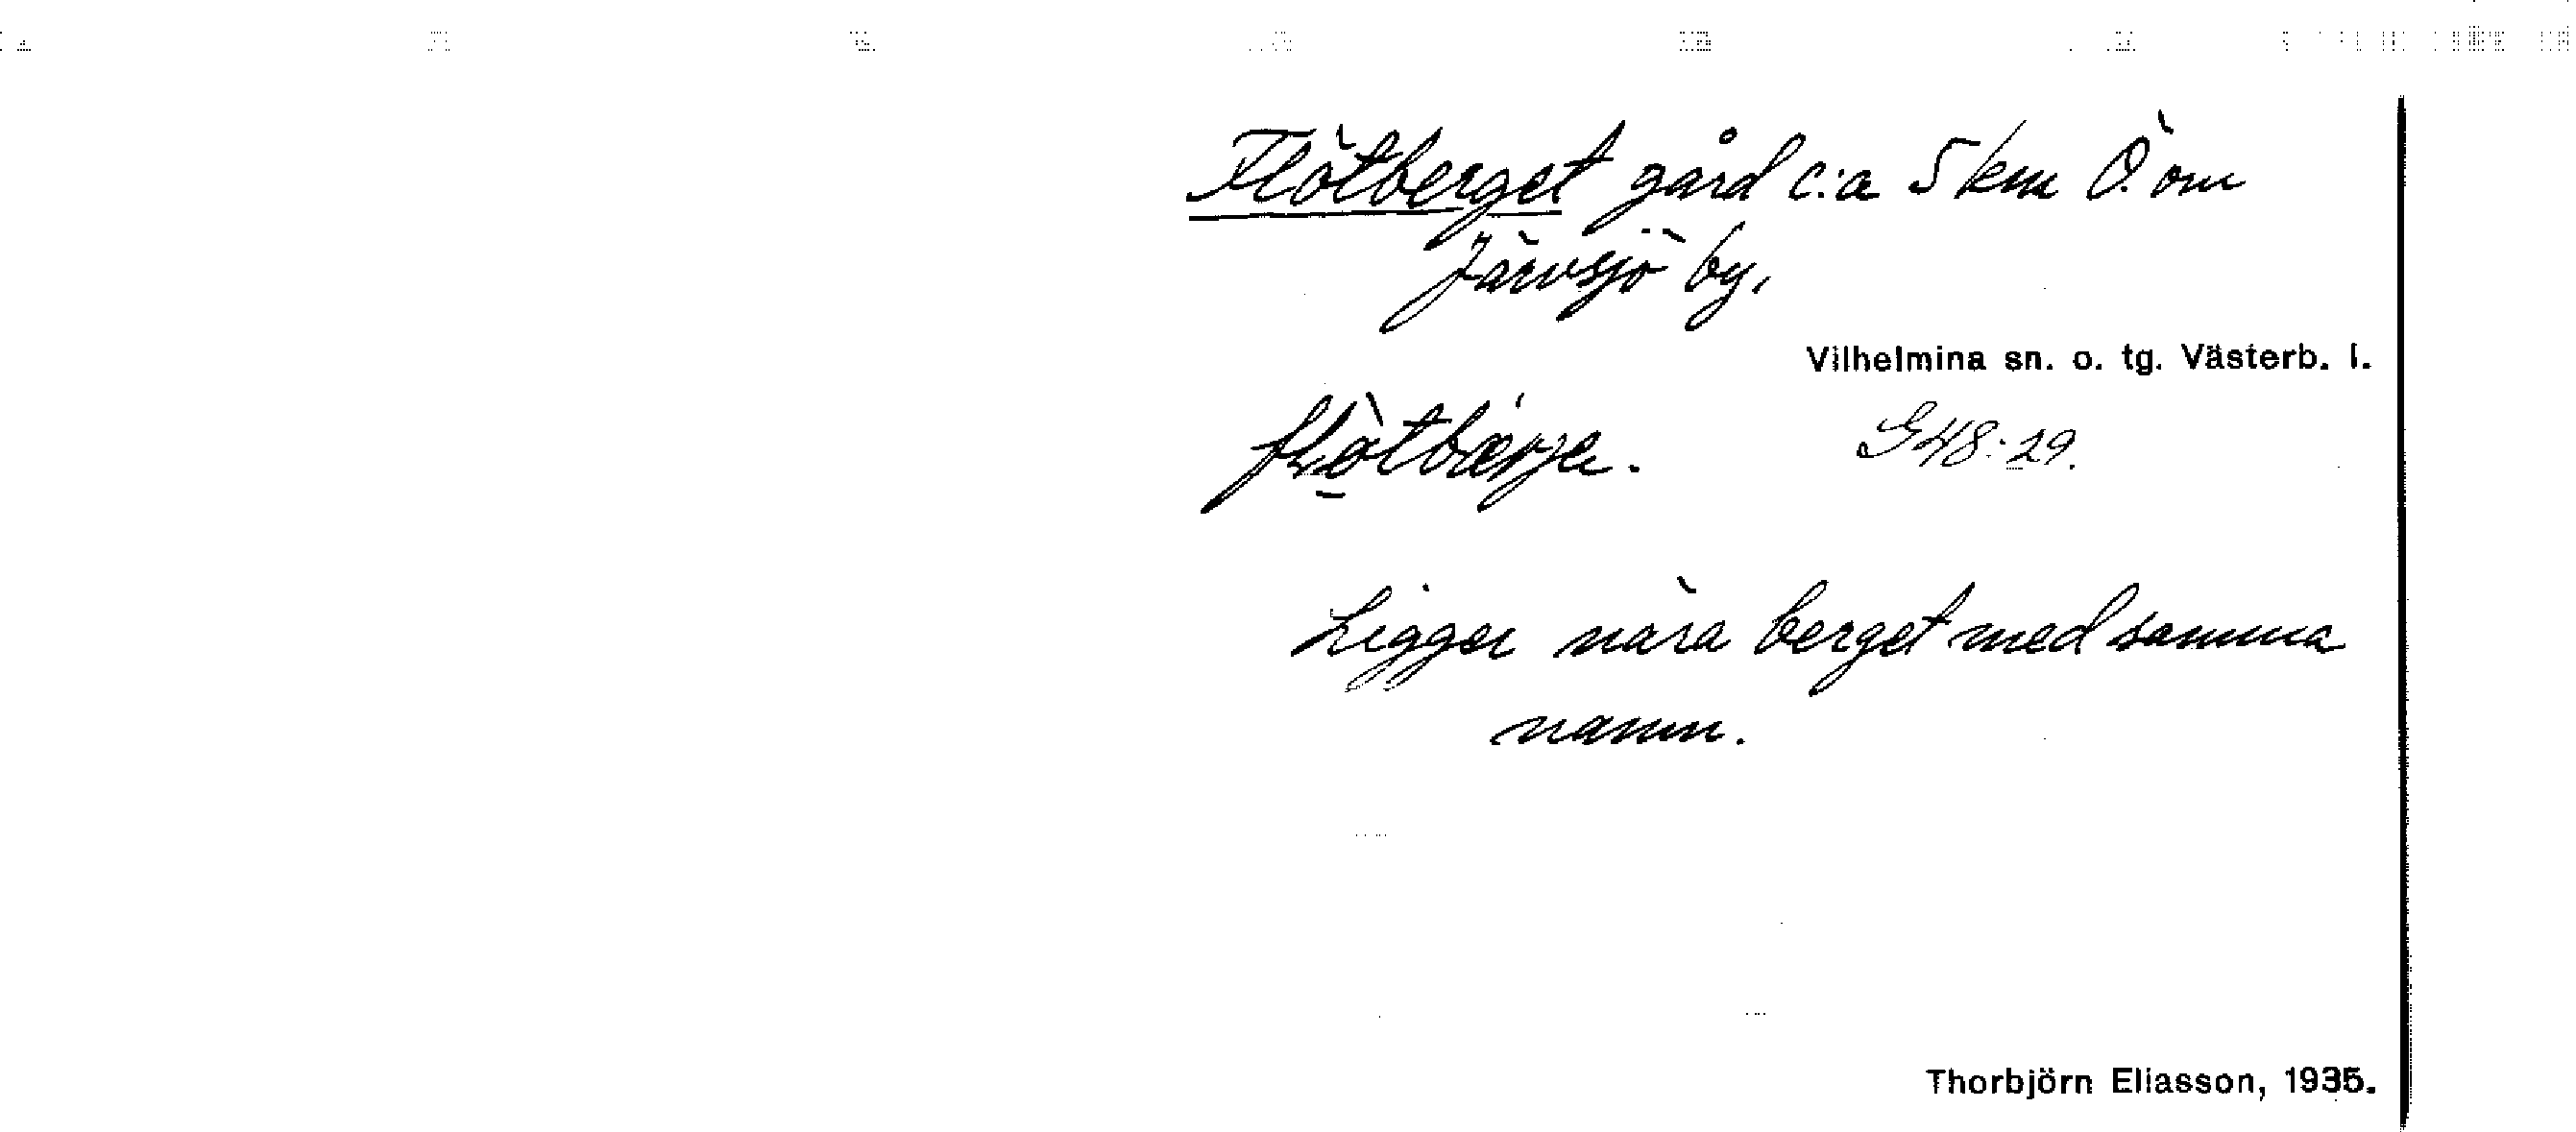 Flötberget gård c:a 5 km Ö. om
Järvsjö by.
Vilhelmina sn. o. tg. Västerb. l.
G48:29.
Ligger nära berget med samma
namn.
Thorbjörn Eliasson, 1935.